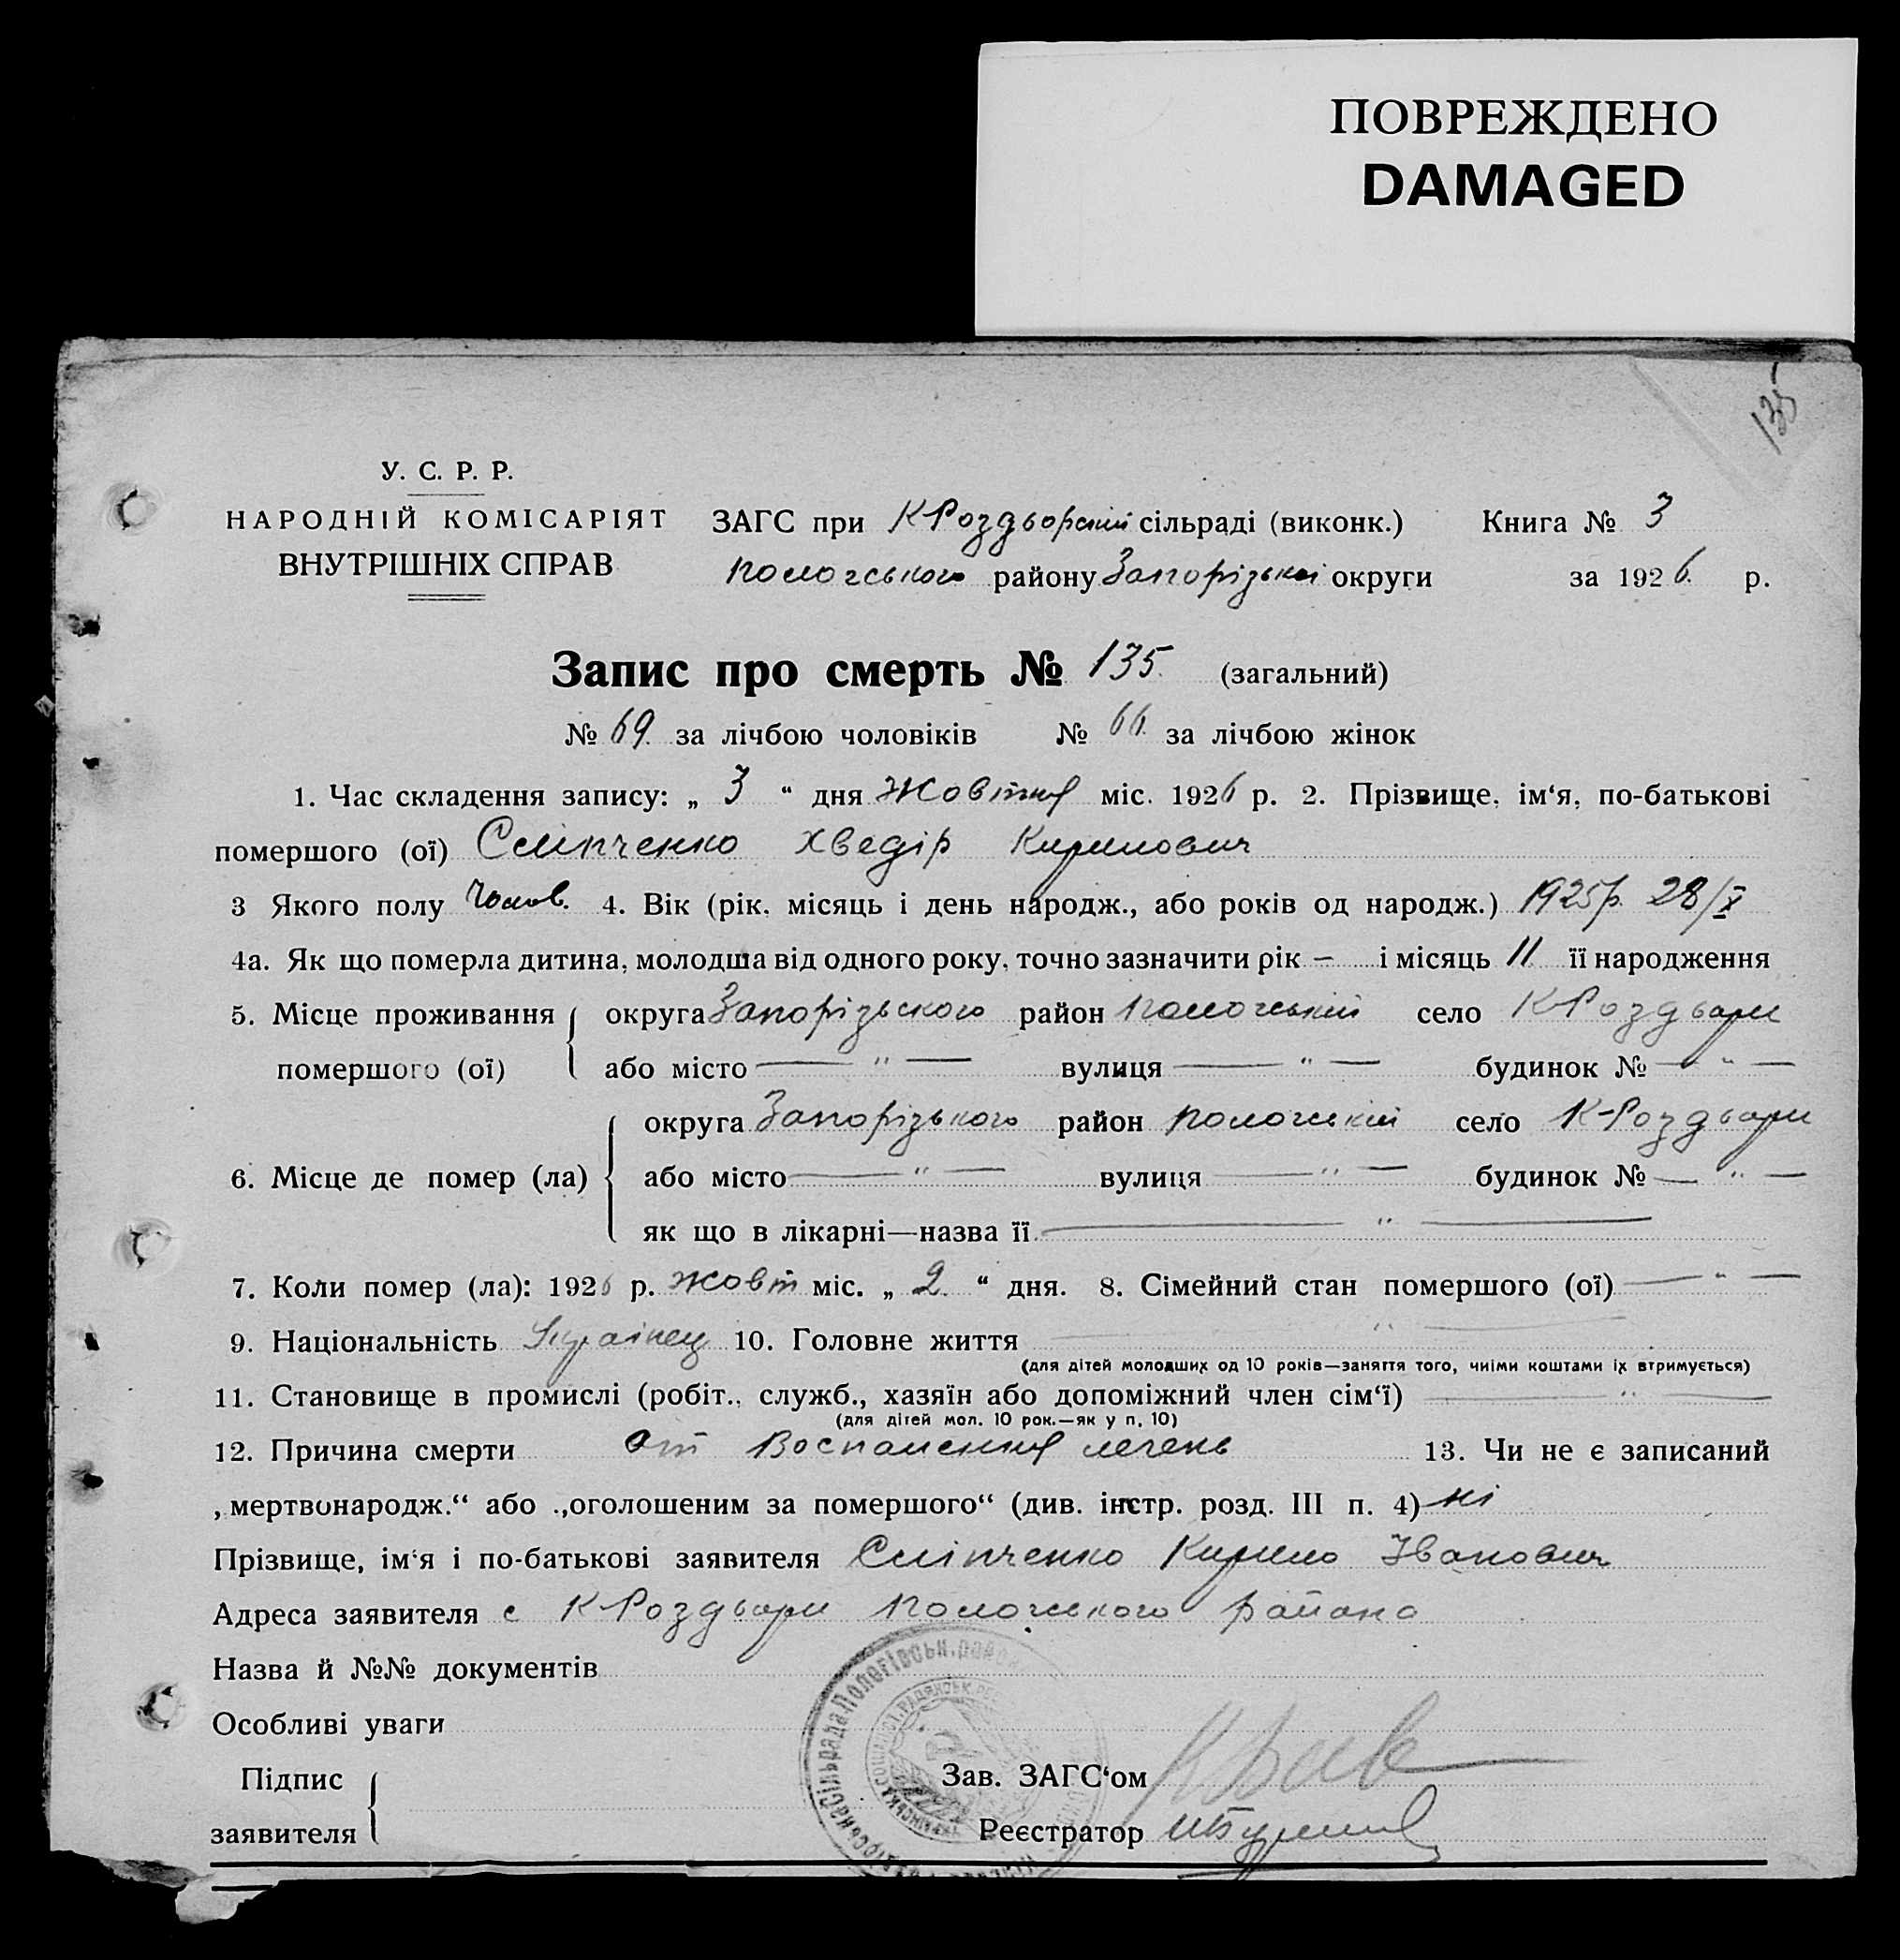 ПОВРЕЖДЕНО
DAMAGED
135
У. С. Р. Р.
НАРОДНІЙ КОМІСАРІЯТ
ВНУТРІШНІХ СПРАВ
ЗАГС при К Роздорській сільраді (виконк.) Книга № 3
пологського району Запорізької округи за 1926 р.
Запис про смерть № 135 (загальний)
№ 69 за лічбою чоловіків № 66 за лічбою жінок
1. Час складення запису: „ 3 “ дня Жовтня міс. 1926 р. 2. Прізвище, ім‘я, по-батькові
помершого (ої) Сліпченко Хведір Кирилович
3 Якого полу Чолов. 4. Вік (рік, місяць і день народж., або років од народж.) 1925 р. 28/X
4а. Як що померла дитина, молодша від одного року, точно зазначити рік – і місяць 11 її народження
5. Місце проживання помершого (ої) округа Запорізького район пологський село К-Роздори
або місто — " — вулиця — " — будинок № — " —
6. Місце де помер (ла) округа Запорізького район пологський село К-Роздори
або місто — " — вулиця — " — будинок № — " —
як що в лікарні—назва її — " —
7. Коли помер (ла): 1926 р. жовт міс. „ 2 “ дня. 8. Сімейний стан помершого (ої) — " —
9. Національність Українец 10. Головне життя — " —
(для дітей молодших од 10 років—заняття того, чиїми коштами їх втримується)
11. Становище в промислі (робіт., служб., хазяїн або допоміжний член сім‘ї) — " —
(для дітей мол. 10 рок.—як у п. 10)
12. Причина смерти от Воспаления легень 13. Чи не є записаний
„мертвонародж.“ або „оголошеним за помершого“ (див. інстр. розд. III п. 4) ні
Прізвище, ім‘я і по-батькові заявителя Сліпченко Кирило Іванович
Адреса заявителя с К-Роздори Пологського района
Назва й №№ документів
Особливі уваги
Підпис
заявителя
Зав. ЗАГС‘ом
Реєстратор